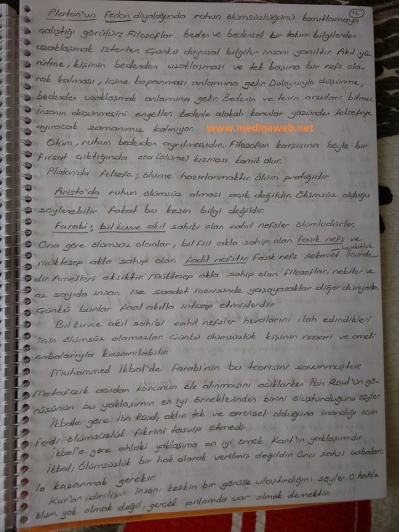 Platon'un Fedon diyaloğunda ruhun ölümsüzlüğünü kanıtlamaya
çalıştığı görülür. Filozoflar beden ve bedensel bir takım bilgilerden
uzaklaşmak isterler. Çünkü duyusal bilgiler insanı yanıltır. Akıl yü-
rütme, kişinin bedenden uzaklaşması ve tek başına bir nefs ola-
rak kalması, içine kapanması anlamına gelir. Dolayısıyla düşünme,
bedenden uzaklaşmak anlamına gelir. Bedenin ve tenin arzuları bitmez,
insanın düşünmesini engeller. Bedenle alakalı konular yüzünden felsefeye
ayıracak zamanımız kalmıyor.
www.medineweb.net
Ölüm, ruhun bedenden ayrılmasıdır. Filozofun karşısına böyle bir
fırsat çıktığında ona (ölüme) kızması komik olur.
Platon'da felsefe; ölüme hazırlanmaktır. Ölüm pratiğidir.
Aristo'da ruhun ölümsüz olması açık değildir. Ölümsüz olduğu
söylenebilir fakat bu kesin bilgi değildir.
Farabi; bilkuvve akıl sahibi olan cahil nefsler ölümlüdürler.
Ona göre ölümsüz olanlar, bilfiil akla sahip olan fasık nefs ve
müktesep akla sahip olan fadıl nefstir. Fasık nefs şekavet içinde-
dir. Amelleri eksiktir. Müktesep akla sahip olan filozoflar, nebiler ve
az sayıda insan ise saadet içerisinde yaşayacaklar diğer dünyada.
Çünkü bunlar faal akılla ittisap etmişlerdir.
Bilkuvve akıl sahibi cahil nefsler hevalarını ilah edindikleri
için ölümsüz olamazlar. Çünkü ölümsüzlük kişinin nazari ve ameli
çabalarıyla kazanılabilir.
Muhammed İkbal'de Farabi'nin bu teorisini savunmuştur.
Metafizik açıdan konunun ele alınmasını açıklarken İbn Rüşd'ün gö-
rüşünün bu yaklaşımın en iyi örneklerinden birini oluşturduğunu söyler.
İkbal'e göre İbn Rüşd, aklın tek ve evrensel olduğuna inandığı için
ferdi ölümsüzlük fikrini tasvip etmedi.
İkbal'e göre ahlaki yaklaşıma en iyi örnek Kant'ın yaklaşımıdır.
İkbal; ölümsüzlük bir hak olarak verilmiş değildir. Onu şahsi çabalar-
la kazanmak gerekir.
Kur'an idiriliyor. İnsanı keskin bir görüşe ulaştırdığını söyler. O halde
ölüm yok olmak değil; gerçek anlamda var olmak demektir.